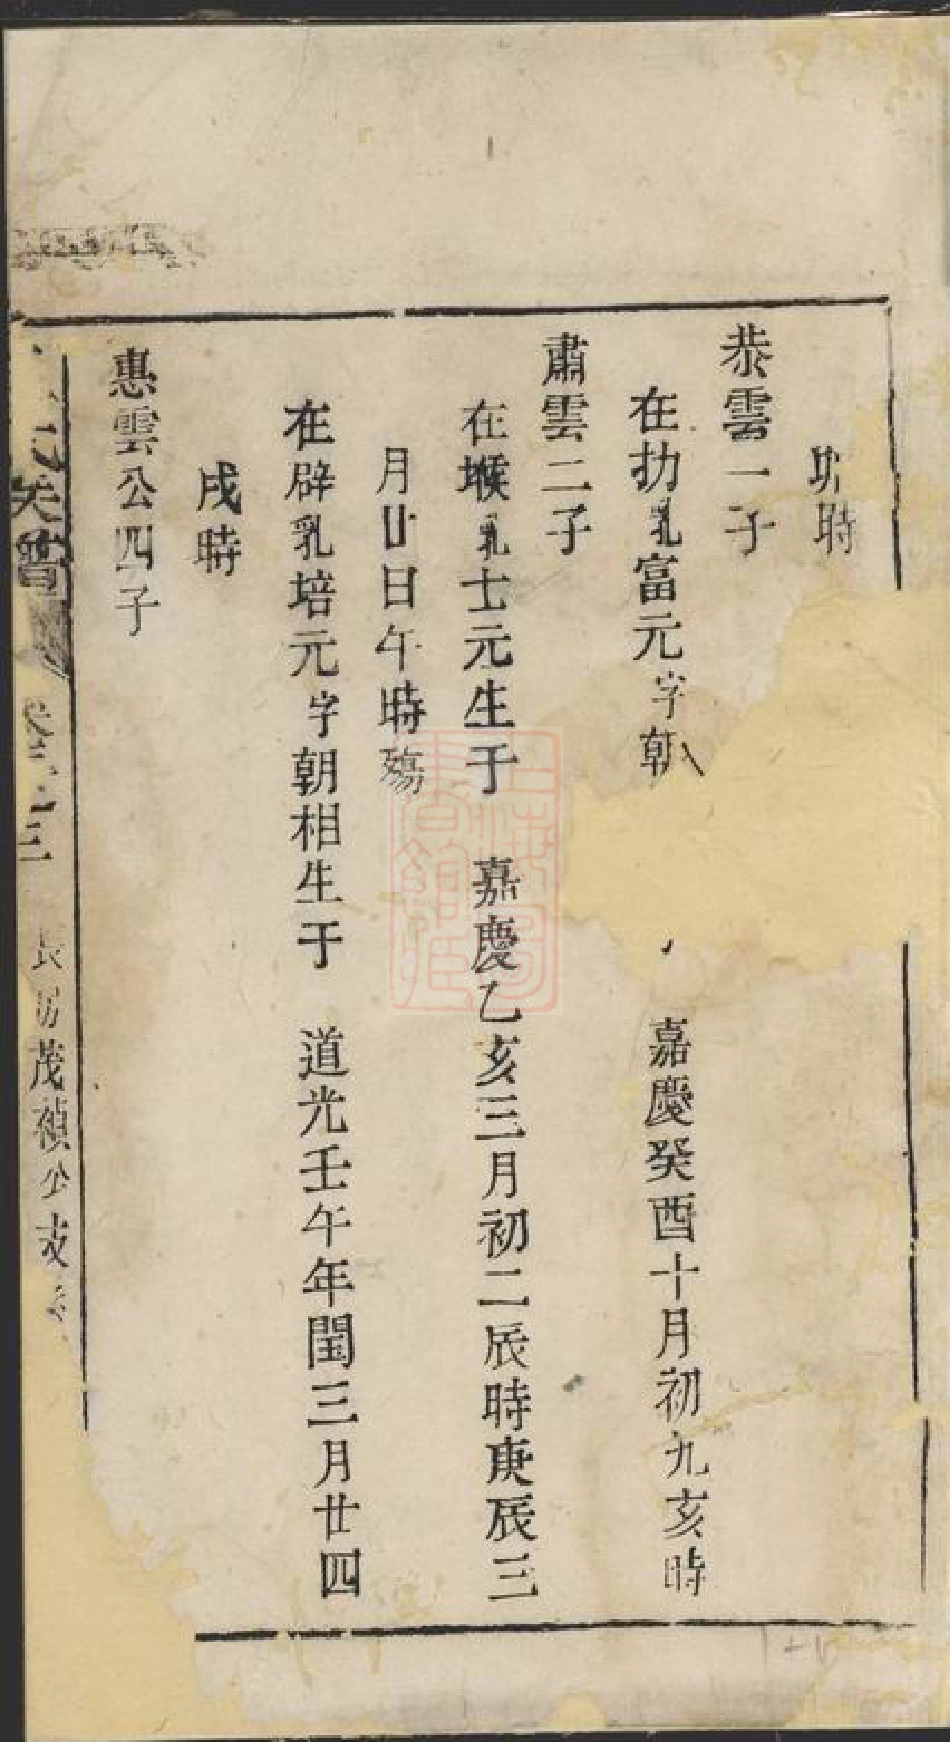 時
恭雲一子
在扐乳富元字朝 嘉慶癸酉十月初九亥時
肅雲二子
在堠乳士元生于 嘉慶乙亥三月初二辰時庚辰三
月廿日午時殤
在辟乳培元字朝相生于 道光壬午年閏三月廿四
戌時
惠雲公四子
氏矢譜 卷三 三 長房茂禎公支
上海圖書館藏